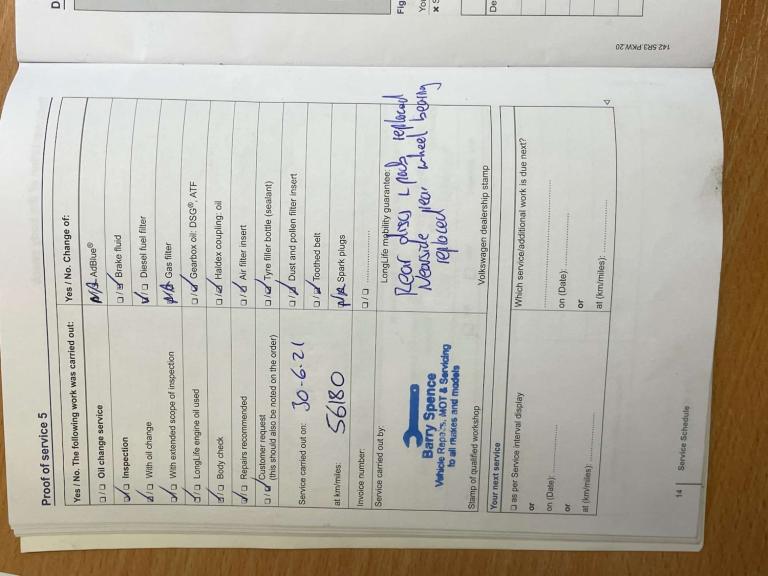 Proof of service 5
Yes / No. The following work was carried out:
Oil change service
Inspection
With oil change
With extended scope of inspection
LongLife engine oil used
Body check
Repairs recommended
Customer request
(this should also be noted on the order)
Service carried out on: 30-6-21
at km/miles: 56180
Invoice number:
Yes / No. Change of:
N/A AdBlue®
Brake fluid
Diesel fuel filter
N/A Gas filter
Gearbox oil: DSG®, ATF
Haldex coupling: oil
Air filter insert
Tyre filler bottle (sealant)
Dust and pollen filter insert
Toothed belt
N/A Spark plugs
Service carried out by:
Barry Spence
Vehicle Repairs, MOT & Servicing
to all makes and models
Stamp of qualified workshop
LongLife mobility guarantee:
Rear discs & pads replaced
Nearside rear wheel bearing
replaced
Volkswagen dealership stamp
Your next service
as per Service interval display
or
on (Date):
or
at (km/miles):
Which service/additional work is due next?
on (Date):
or
at (km/miles):
14 Service Schedule
142.5R3.PKW.20
D
Fig
You
De